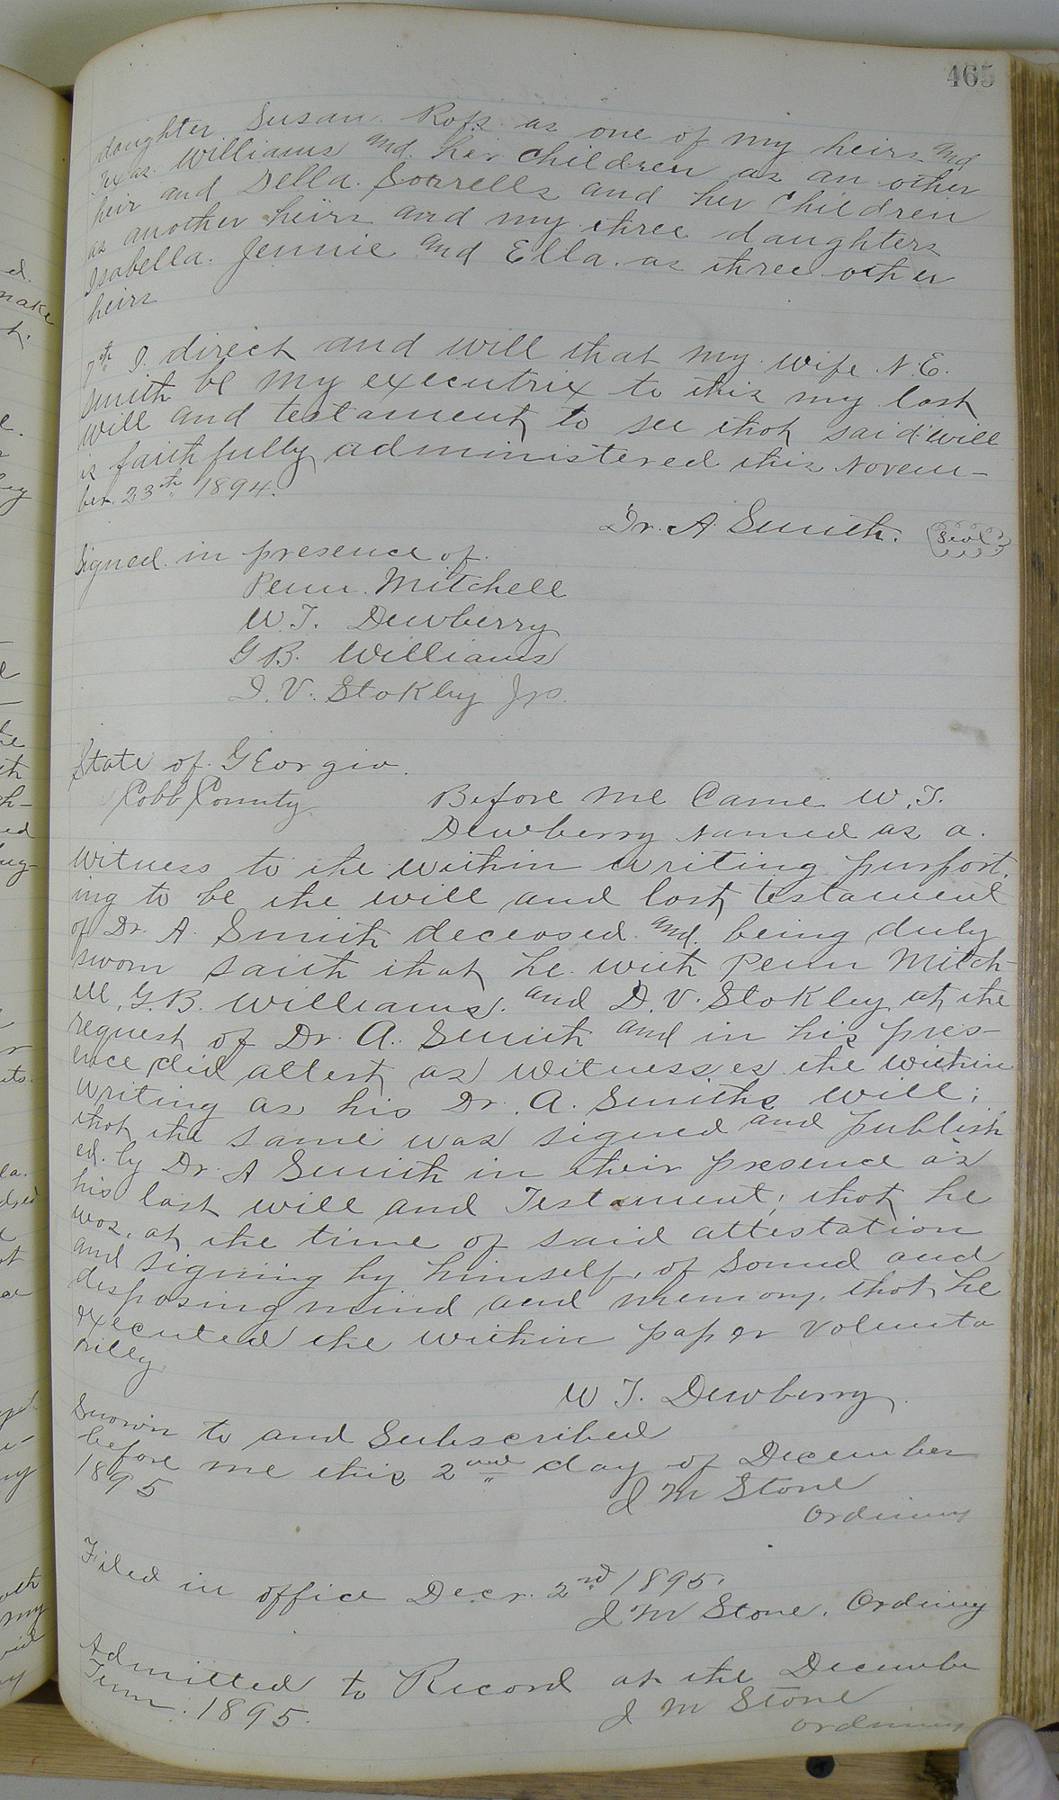 465
daughter Susan Ross as one of my heirs and
Texas Williams and her children as an other
heir and Della Sorrells and her children
as another heirs and my three daughters
Isabella. Jennie and Ella. as three other
heirs
7th I direct and will that my wife N. E.
Smith be my executrix to this my last
will and testament to see that said will
is faithfully administered this Novem-
ber 23th 1894.
Dr. A. Smith. Seal
Signed in presence of
Penn Mitchell
W. T. Dewberry
G B. Williams
D. V. Stokley
State of Georgia.
Cobb County Before me Came W. T.
Dewberry named as a
witness to the within writing purport.
ing to be the will and last testament
of Dr. A. Smith deceased and being duly
sworn saith that he with Penn Mitch-
ell, G. B. Williams. and D. V. Stokley at the
request of Dr. A. Smith and in his pres-
ence did attest as witnesses the within
writing as his Dr. A. Smiths will;
that the same was signed and publish
ed. by Dr. A Smith in their presence as
his last will and Testament; that he
was, at the time of said attestation
and signing by himself, of sound and
disposing mind and memory, that he
executed the within paper volunta
rilly
W T. Dewberry.
Sworn to and Subscribed
before me this 2nd day of December
1895
J M Stone
Ordinary
Filed in office Decr. 2nd 1895.
J M Stone. Ordinary
Admitted to Record at the Decembe
Term. 1895.
J M Stone
Ordinary